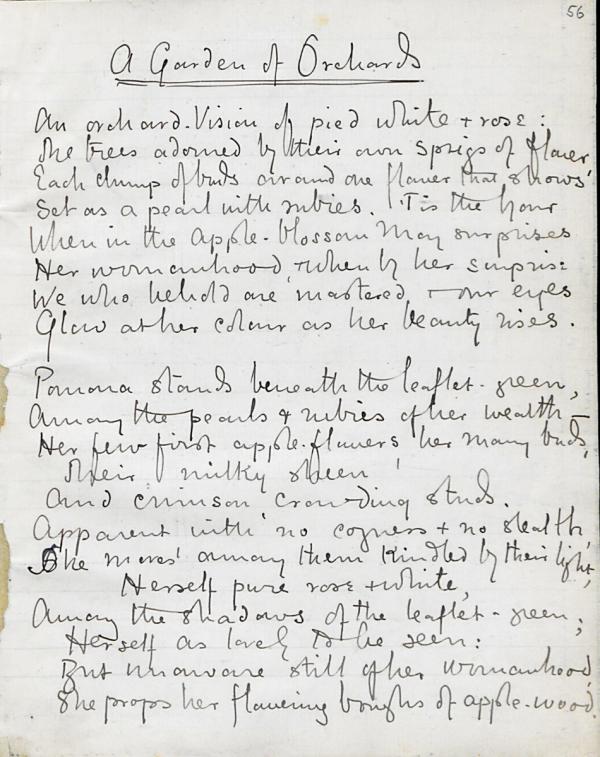 56
A Garden of Orchards
An orchard-Vision of pied white & rose:
The trees adorned by their own sprigs of flower,
Each clump of buds around one flower that shows
Set as a pearl with rubies. 'Tis the hour
When in the apple-blossom May surprises
Her womanhood, & when by her surprise
We who behold are mastered, & our eyes
Glow at her colour as her beauty rises.
Pomona stands beneath the leaflet-green,
Among the pearls & rubies of her wealth –
Her few first apple-flowers, her many buds,
Their milky sheen
And crimson crowding studs.
Apparent with no coyness & no stealth,
She moves among them kindled by their light,
Herself pure rose & white,
Among the shadows of the leaflet-green;
Herself as lovely to be seen:
But unaware still of her womanhood,
She props her flowering boughs of apple-wood.